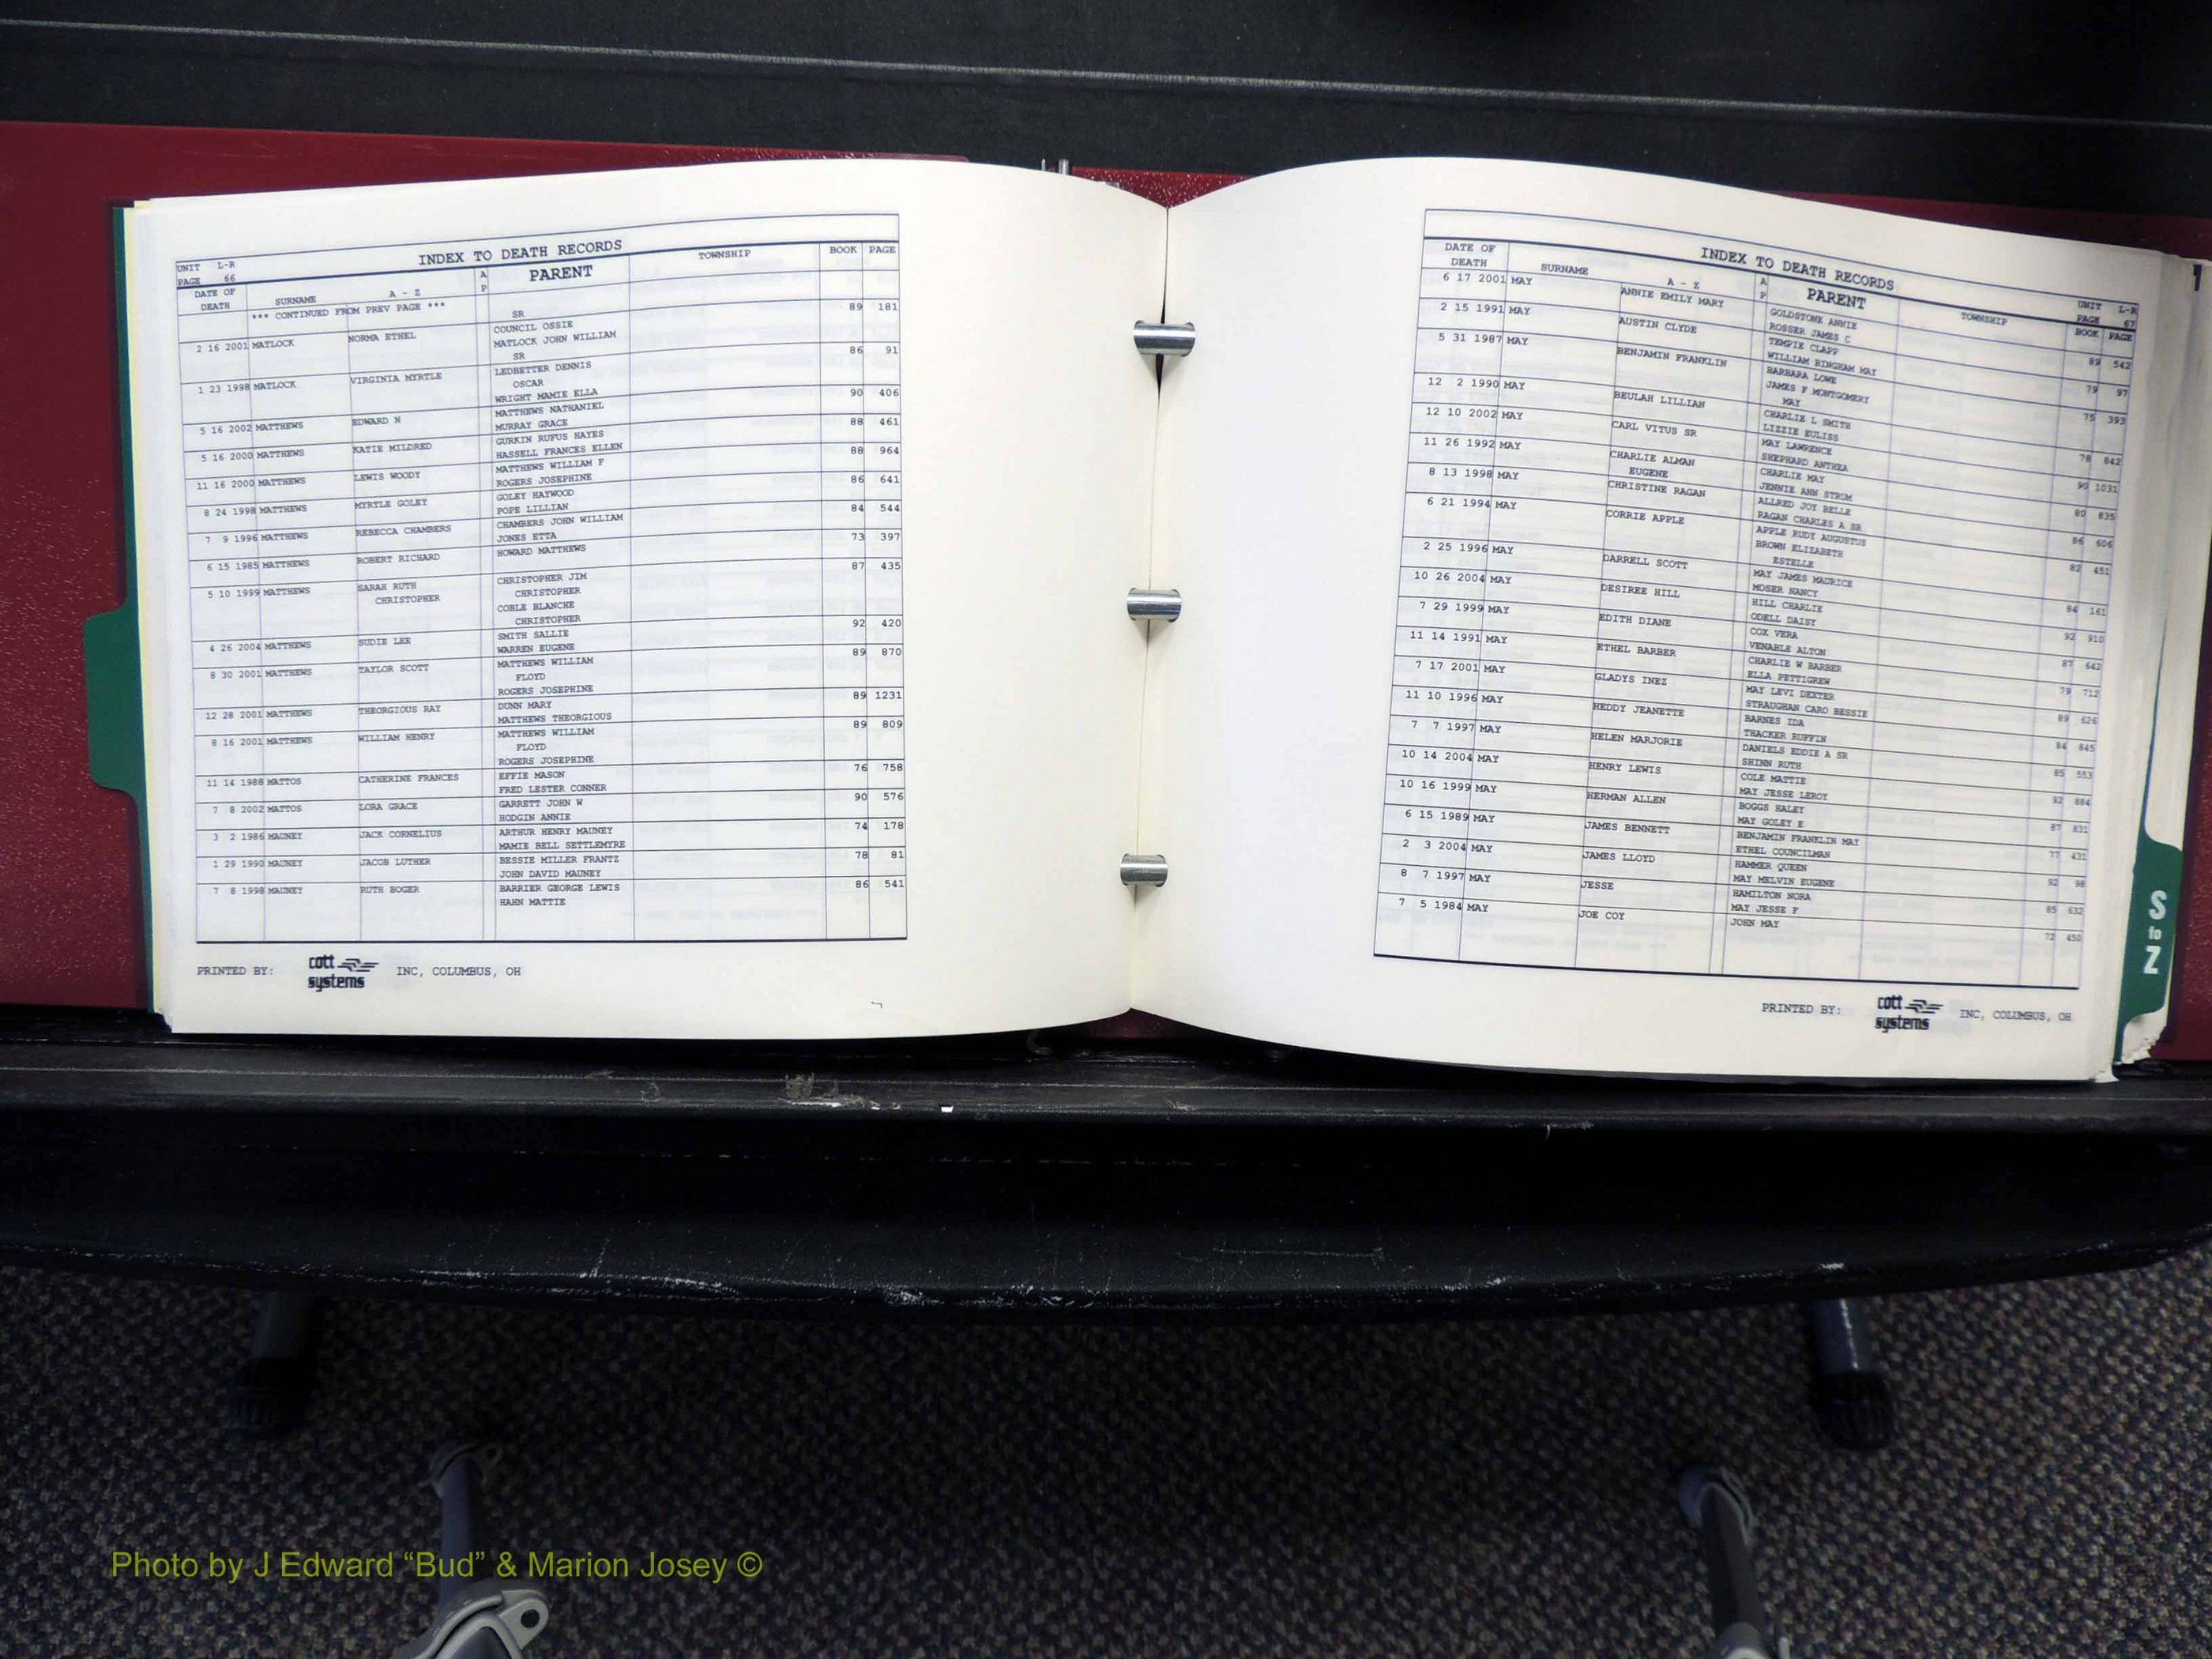 INDEX TO DEATH RECORDS
UNIT L-R
PAGE 66
DATE OF DEATH SURNAME A - Z A P PARENT TOWNSHIP BOOK PAGE
*** CONTINUED FROM PREV PAGE *** SR
2 16 2001 MATLOCK NORMA ETHEL COUNCIL OSSIE 89 181
MATLOCK JOHN WILLIAM
SR
1 23 1998 MATLOCK VIRGINIA MYRTLE LEDBETTER DENNIS 86 91
OSCAR
WRIGHT MAMIE ELLA
5 16 2002 MATTHEWS EDWARD N MATTHEWS NATHANIEL 90 406
MURRAY GRACE
5 16 2000 MATTHEWS KATIE MILDRED GURKIN RUFUS HAYES 88 461
HASSELL FRANCES ELLEN
11 16 2000 MATTHEWS LEWIS WOODY MATTHEWS WILLIAM F 88 964
ROGERS JOSEPHINE
8 24 1998 MATTHEWS MYRTLE GOLEY GOLEY HAYWOOD 86 641
POPE LILLIAN
7 9 1996 MATTHEWS REBECCA CHAMBERS CHAMBERS JOHN WILLIAM 84 544
JONES ETTA
6 15 1985 MATTHEWS ROBERT RICHARD HOWARD MATTHEWS 73 397
5 10 1999 MATTHEWS SARAH RUTH CHRISTOPHER JIM 87 435
CHRISTOPHER CHRISTOPHER
COBLE BLANCHE
CHRISTOPHER
4 26 2004 MATTHEWS SUDIE LEE SMITH SALLIE 92 420
WARREN EUGENE
8 30 2001 MATTHEWS TAYLOR SCOTT MATTHEWS WILLIAM 89 870
FLOYD
ROGERS JOSEPHINE
12 28 2001 MATTHEWS THEORGIOUS RAY DUNN MARY 89 1231
MATTHEWS THEORGIOUS
8 16 2001 MATTHEWS WILLIAM HENRY MATTHEWS WILLIAM 89 809
FLOYD
ROGERS JOSEPHINE
11 14 1988 MATTOS CATHERINE FRANCES EFFIE MASON 76 758
FRED LESTER CONNER
7 8 2002 MATTOS LORA GRACE GARRETT JOHN W 90 576
HODGIN ANNIE
3 2 1986 MAUNEY JACK CORNELIUS ARTHUR HENRY MAUNEY 74 178
MAMIE BELL SETTLEMYRE
1 29 1990 MAUNEY JACOB LUTHER BESSIE MILLER FRANTZ 78 81
JOHN DAVID MAUNEY
7 8 1998 MAUNEY RUTH BOGER BARRIER GEORGE LEWIS 86 541
HAHN MATTIE
PRINTED BY: cott systems INC, COLUMBUS, OH
INDEX TO DEATH RECORDS
UNIT L-R
PAGE 67
DATE OF DEATH SURNAME A - Z A P PARENT TOWNSHIP BOOK PAGE
6 17 2001 MAY ANNIE EMILY MARY GOLDSTONE ANNIE 89 542
ROSSER JAMES C
2 15 1991 MAY AUSTIN CLYDE TEMPIE CLAPP 79 97
WILLIAM BINGHAM MAY
5 31 1987 MAY BENJAMIN FRANKLIN BARBARA LOWE 75 393
JAMES F MONTGOMERY
MAY
12 2 1990 MAY BEULAH LILLIAN CHARLIE L SMITH 78 842
LIZZIE EULISS
12 10 2002 MAY CARL VITUS SR MAY LAWRENCE 90 1031
SHEPHARD ANTHEA
11 26 1992 MAY CHARLIE ALMAN CHARLIE MAY 80 835
EUGENE JENNIE ANN STROM
8 13 1998 MAY CHRISTINE RAGAN ALLRED JOY BELLE 86 606
RAGAN CHARLES A SR
6 21 1994 MAY CORRIE APPLE APPLE RUDY AUGUSTUS 82 451
BROWN ELIZABETH
ESTELLE
2 25 1996 MAY DARRELL SCOTT MAY JAMES MAURICE 84 161
MOSER NANCY
10 26 2004 MAY DESIREE HILL HILL CHARLIE 92 910
ODELL DAISY
7 29 1999 MAY EDITH DIANE COX VERA 87 642
VENABLE ALTON
11 14 1991 MAY ETHEL BARBER CHARLIE W BARBER 79 712
ELLA PETTIGREW
7 17 2001 MAY GLADYS INEZ MAY LEVI DEXTER 89 626
STRAUGHAN CARO BESSIE
11 10 1996 MAY HEDDY JEANETTE BARNES IDA 84 845
THACKER RUFFIN
7 7 1997 MAY HELEN MARJORIE DANIELS EDDIE A SR 85 553
SHINN RUTH
10 14 2004 MAY HENRY LEWIS COLE MATTIE 92 884
MAY JESSE LEROY
10 16 1999 MAY HERMAN ALLEN BOGGS HALEY 87 831
MAY GOLEY E
6 15 1989 MAY JAMES BENNETT BENJAMIN FRANKLIN MAY 77 431
ETHEL COUNCILMAN
2 3 2004 MAY JAMES LLOYD HAMMER QUEEN 92 98
MAY MELVIN EUGENE
8 7 1997 MAY JESSE HAMILTON NORA 85 632
MAY JESSE F
7 5 1984 MAY JOE COY JOHN MAY 72 450
PRINTED BY: cott systems INC, COLUMBUS, OH
S to Z
Photo by J Edward “Bud” & Marion Josey ©